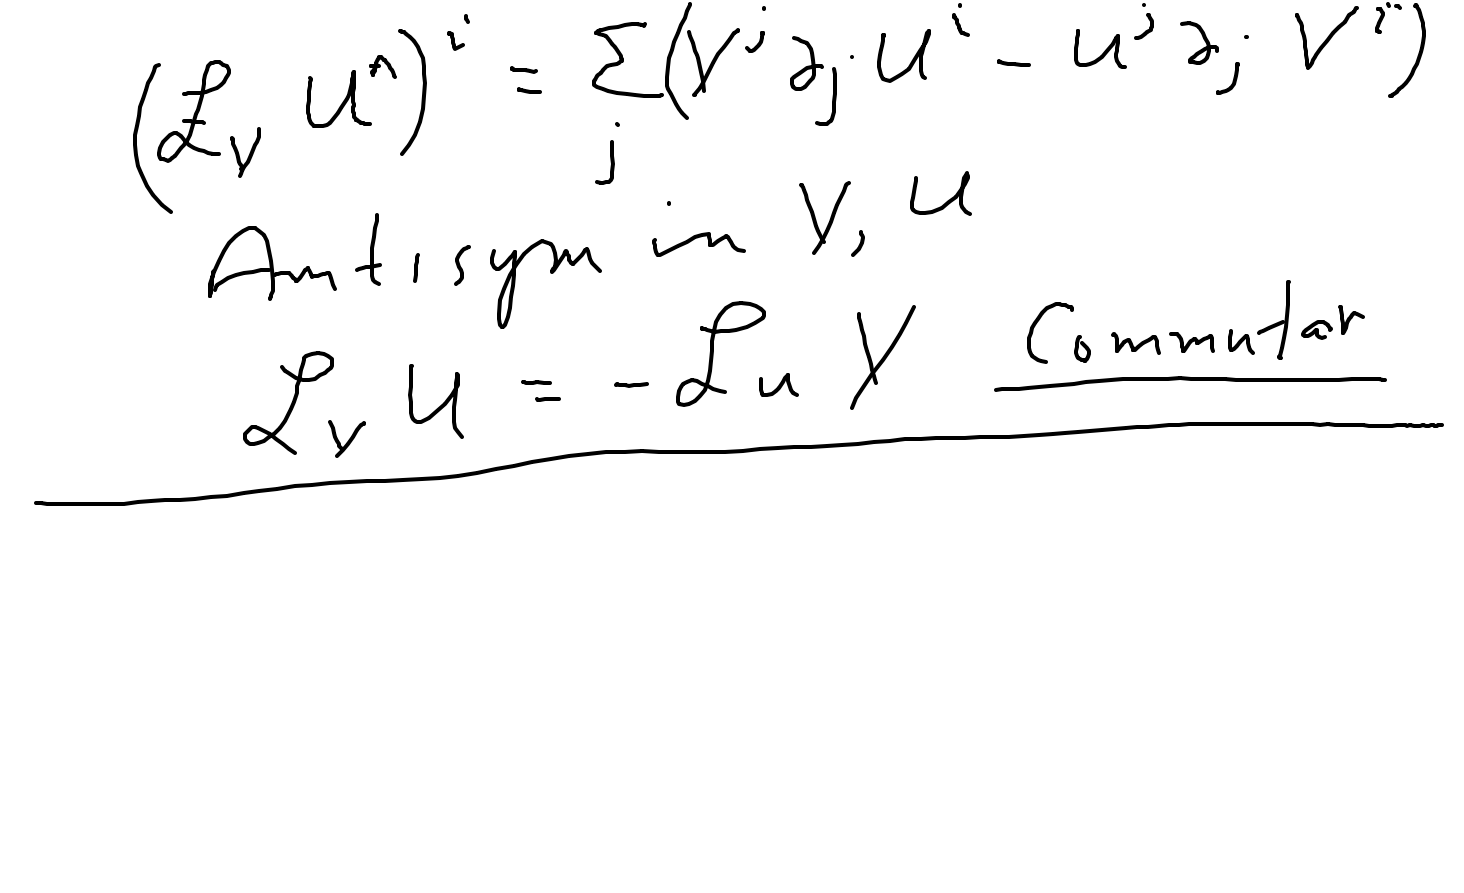 (ℒ_V U^n)^i = Σ_j (V^j ∂_j U^i − U^j ∂_j V^i)
Antisym in V, U
ℒ_V U = − ℒ_u V Commutar